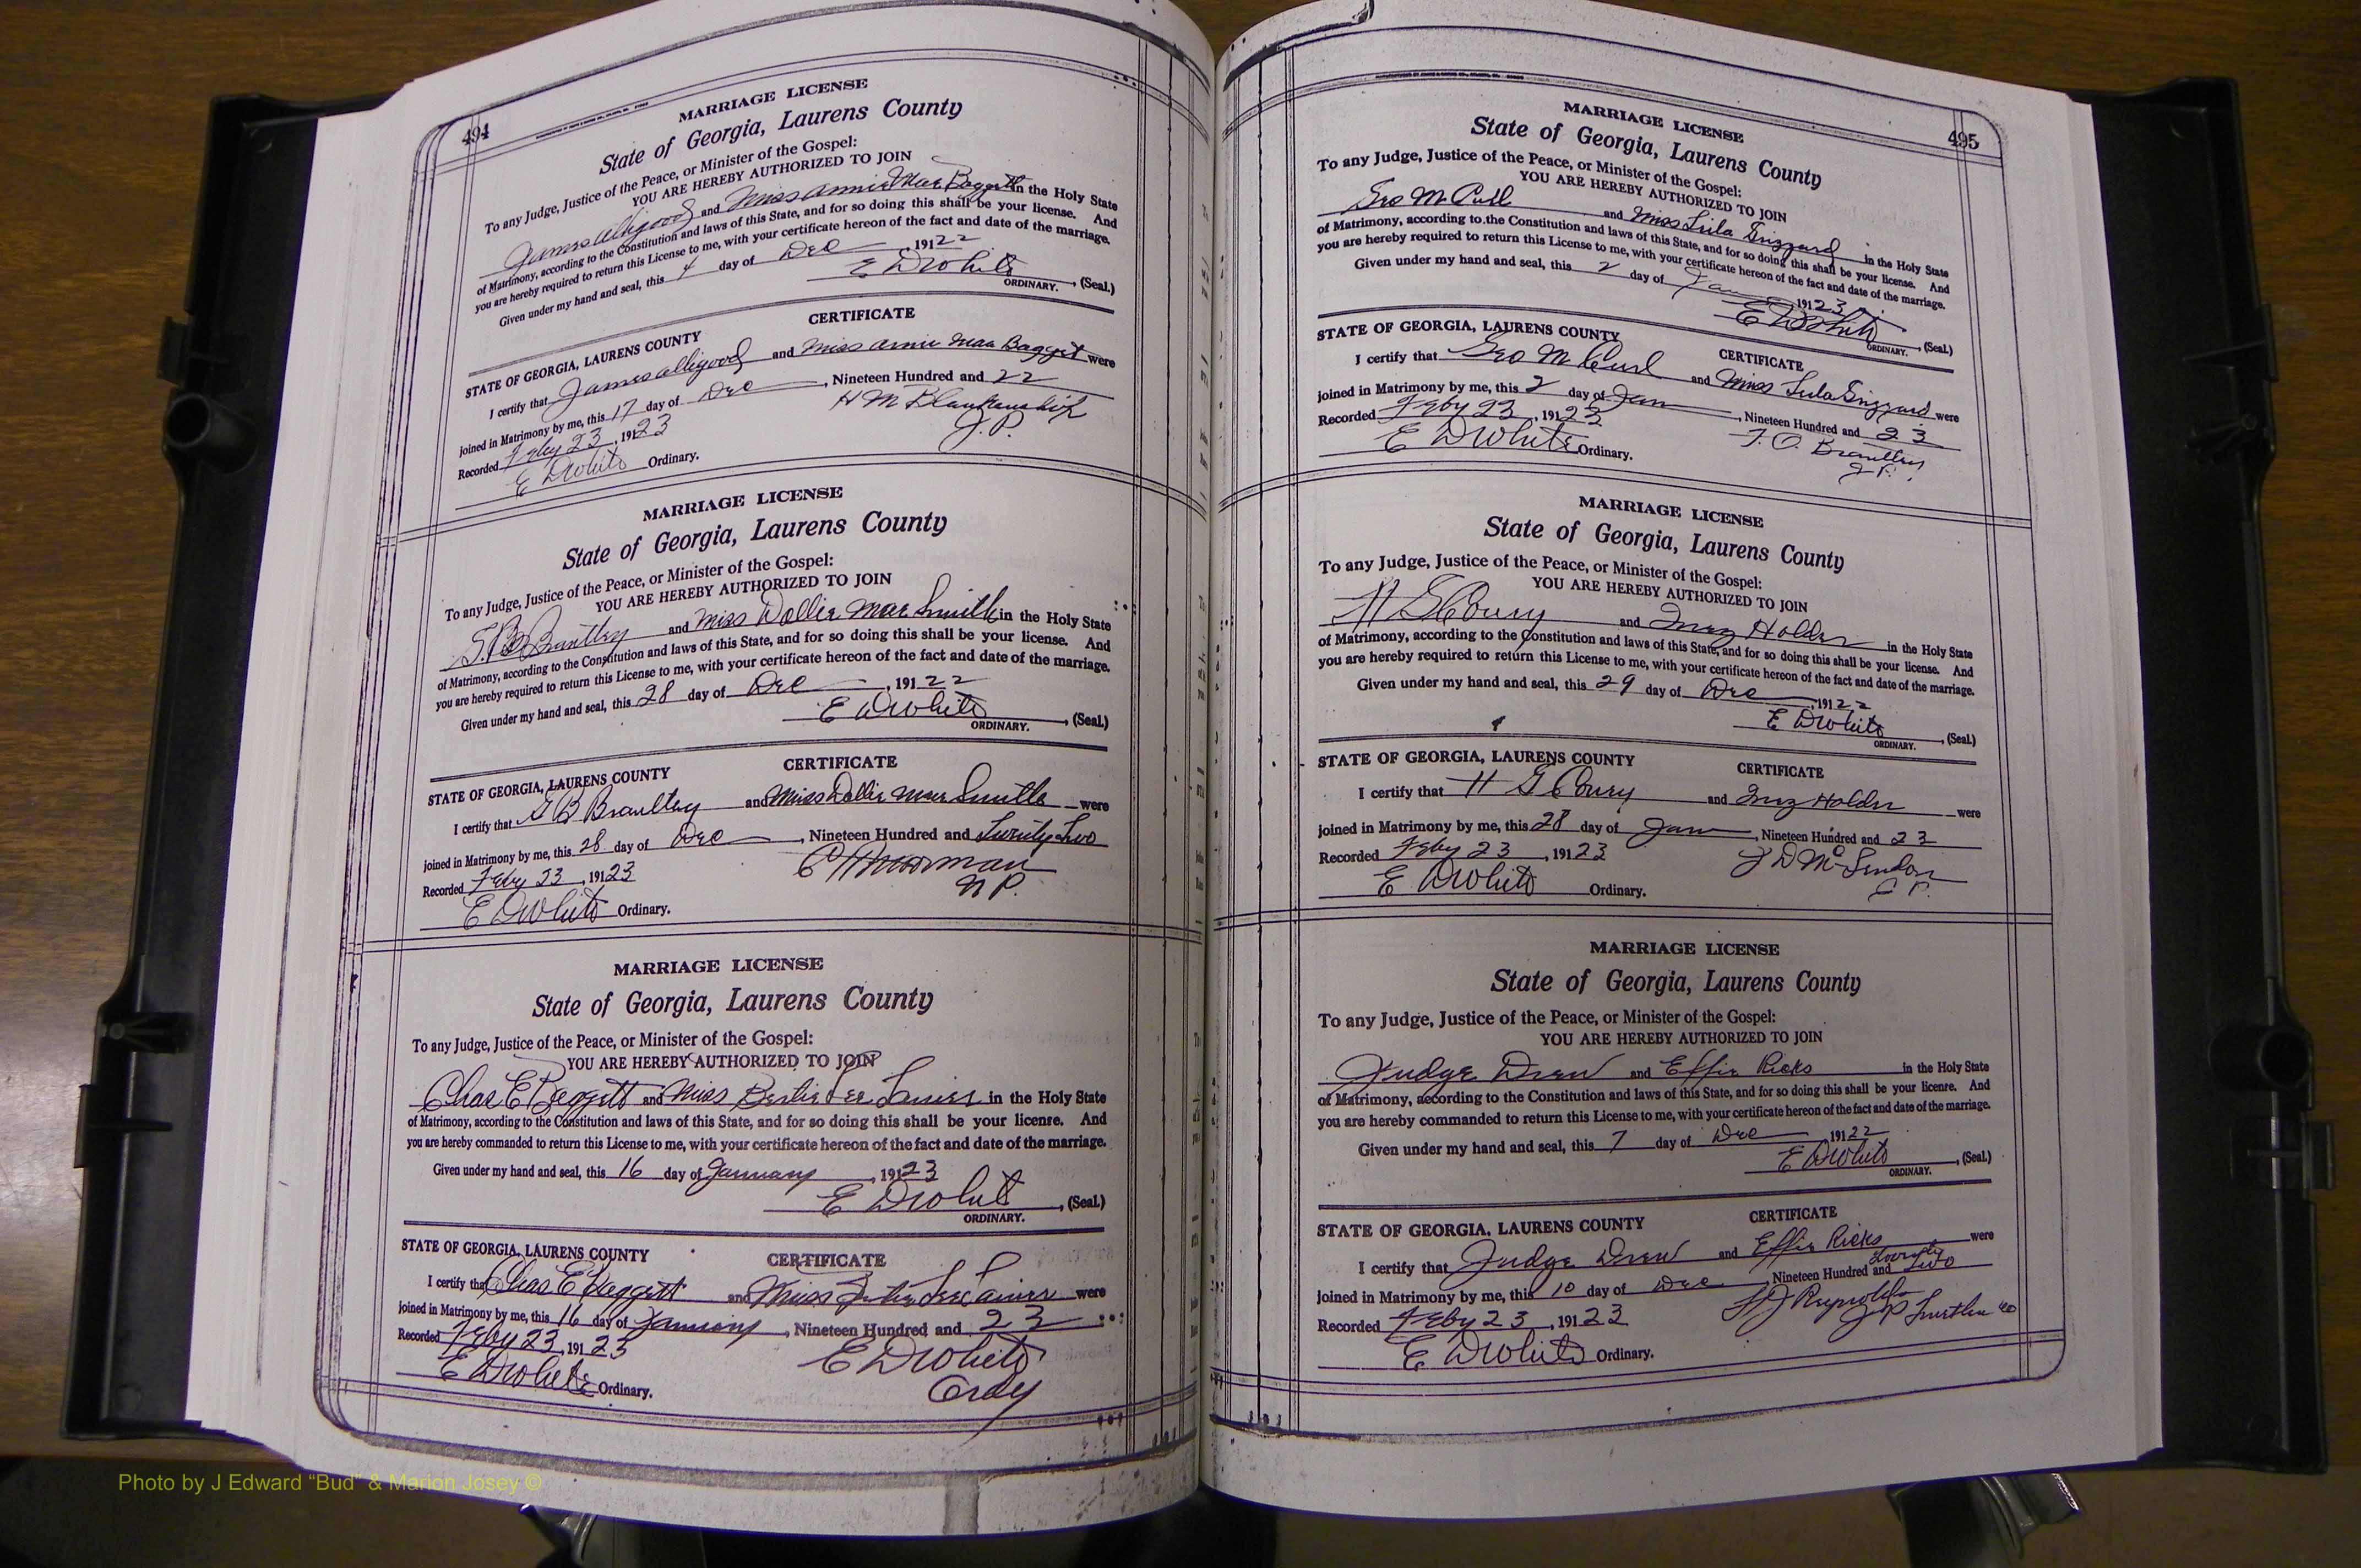 494
MARRIAGE LICENSE
State of Georgia, Laurens County
To any Judge, Justice of the Peace, or Minister of the Gospel:
YOU ARE HEREBY AUTHORIZED TO JOIN
James Alligood and Miss Annie Mae Baggett in the Holy State
of Matrimony, according to the Constitution and laws of this State, and for so doing this shall be your license. And
you are hereby required to return this License to me, with your certificate hereon of the fact and date of the marriage.
Given under my hand and seal, this 4 day of Dec 19122
E D White (Seal.)
ORDINARY.
CERTIFICATE
STATE OF GEORGIA, LAURENS COUNTY
I certify that James Alligood and Miss Annie Mae Baggett were
joined in Matrimony by me, this 17 day of Dec, Nineteen Hundred and 22
Recorded Feby 23, 19123 H M Blankenship
E D White Ordinary. J.P.
MARRIAGE LICENSE
State of Georgia, Laurens County
To any Judge, Justice of the Peace, or Minister of the Gospel:
YOU ARE HEREBY AUTHORIZED TO JOIN
Brantley and Miss Dollie Mae Smith in the Holy State
of Matrimony, according to the Constitution and laws of this State, and for so doing this shall be your license. And
you are hereby required to return this License to me, with your certificate hereon of the fact and date of the marriage.
Given under my hand and seal, this 28 day of Dec, 19122
E D White, (Seal.)
ORDINARY.
CERTIFICATE
STATE OF GEORGIA, LAURENS COUNTY
I certify that B Brantley and Miss Dollie Mae Smith were
joined in Matrimony by me, this 28 day of Dec, Nineteen Hundred and Twenty Two
Recorded Feby 23, 19123
E D White Ordinary. N P.
MARRIAGE LICENSE
State of Georgia, Laurens County
To any Judge, Justice of the Peace, or Minister of the Gospel:
YOU ARE HEREBY AUTHORIZED TO JOIN
Chas E Baggett and Miss Lee Lanier in the Holy State
of Matrimony, according to the Constitution and laws of this State, and for so doing this shall be your license. And
you are hereby commanded to return this License to me, with your certificate hereon of the fact and date of the marriage.
Given under my hand and seal, this 16 day of January, 19123
E D White, (Seal.)
ORDINARY.
STATE OF GEORGIA, LAURENS COUNTY CERTIFICATE
I certify that Chas E Baggett and Miss Lee Lanier were
joined in Matrimony by me, this 16 day of January, Nineteen Hundred and 23
Recorded Feby 23, 19123 E D White
E D White Ordinary. Ordy
495
MARRIAGE LICENSE
State of Georgia, Laurens County
To any Judge, Justice of the Peace, or Minister of the Gospel:
YOU ARE HEREBY AUTHORIZED TO JOIN
Geo M and Miss Lula Grizzard in the Holy State
of Matrimony, according to the Constitution and laws of this State, and for so doing this shall be your license. And
you are hereby required to return this License to me, with your certificate hereon of the fact and date of the marriage.
Given under my hand and seal, this 2 day of Jan 19123
E D White, (Seal.)
ORDINARY.
STATE OF GEORGIA, LAURENS COUNTY CERTIFICATE
I certify that Geo M Curl and Miss Lula Grizzard were
joined in Matrimony by me, this 2 day of Jan, Nineteen Hundred and 23
Recorded Feby 23, 19123 Brantley
E D White Ordinary. J P.
MARRIAGE LICENSE
State of Georgia, Laurens County
To any Judge, Justice of the Peace, or Minister of the Gospel:
YOU ARE HEREBY AUTHORIZED TO JOIN
H G Coury and Inez Holder in the Holy State
of Matrimony, according to the Constitution and laws of this State, and for so doing this shall be your license. And
you are hereby required to return this License to me, with your certificate hereon of the fact and date of the marriage.
Given under my hand and seal, this 29 day of Dec, 19122
E D White, (Seal.)
ORDINARY.
STATE OF GEORGIA, LAURENS COUNTY CERTIFICATE
I certify that H G Coury and Inez Holder were
joined in Matrimony by me, this 28 day of Jan, Nineteen Hundred and 23
Recorded Feby 23, 19123 J D McLendon
E D White Ordinary. J P.
MARRIAGE LICENSE
State of Georgia, Laurens County
To any Judge, Justice of the Peace, or Minister of the Gospel:
YOU ARE HEREBY AUTHORIZED TO JOIN
Judge Drew and Effie Ricks in the Holy State
of Matrimony, according to the Constitution and laws of this State, and for so doing this shall be your license. And
you are hereby commanded to return this License to me, with your certificate hereon of the fact and date of the marriage.
Given under my hand and seal, this 7 day of Dec, 19122
E D White, (Seal.)
ORDINARY.
STATE OF GEORGIA, LAURENS COUNTY CERTIFICATE
I certify that Judge Drew and Effie Ricks were
joined in Matrimony by me, this 10 day of Dec, Nineteen Hundred and Twenty Two
Recorded Feby 23, 19123 Reynolds
E D White Ordinary. JP
Photo by J Edward “Bud” & Marion Josey ©